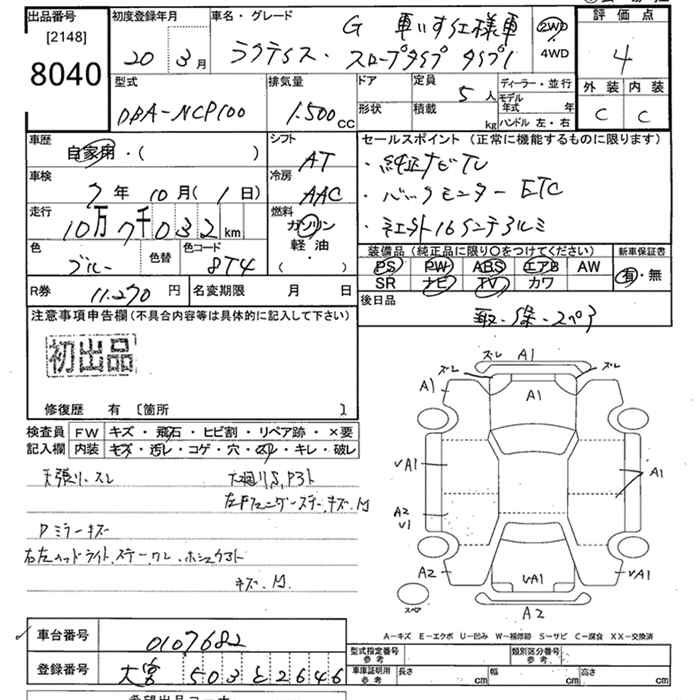 出品番号
[2148]
8040
初度登録年月
20 3月
車名・グレード
G 車いす仕様車
ラクティス・スロープタイプ タイプI
2WD
4WD
評価点
4
外装 内装
C C
型式
DBA-NCP100
排気量
1.500cc
ドア
形状
定員
5人
積載
kg
ディーラー・並行
モデル年式 年
ハンドル 左・右
車歴
自家用・( )
シフト
AT
車検
7年10月(1日)
冷房
AAC
走行
10万7千032km
燃料
ガソリン
軽油・
( )
色
ブルー
色替
色コード
8T4
R券
11.270円
名変期限 月 日
セールスポイント(正常に機能するものに限ります)
・純正ナビTV
・バックモニター ETC
装備品(純正品に限り○をつけてください)
PS PW ABS エアB AW
SR ナビ TV カワ
新車保証書
有・無
後日品
注意事項申告欄(不具合内容等は具体的に記入して下さい)
初出品
修復歴 有 [箇所 ]
検査員
記入欄
FW キズ・飛石・ヒビ割・リペア跡・×要
内装 キズ・汚レ・コゲ・穴・スレ・キレ・破レ
天張リ・スレ
Pミラーキズ
キズ.M
ズレ A1 ズレ
A1 A1
vA1 A1
A2
v1
A2 vA1 vA1
スペア A2
A-キズ E-エクボ U-凹み W-補修跡 S-サビ C-腐食 XX-交換済
車台番号
0107682
登録番号
大宮 503 と 2646
型式指定番号
参考
類別区分番号
参考
車庫証明用
参考
長さ cm 幅 cm 高さ cm
希望出品コーナー